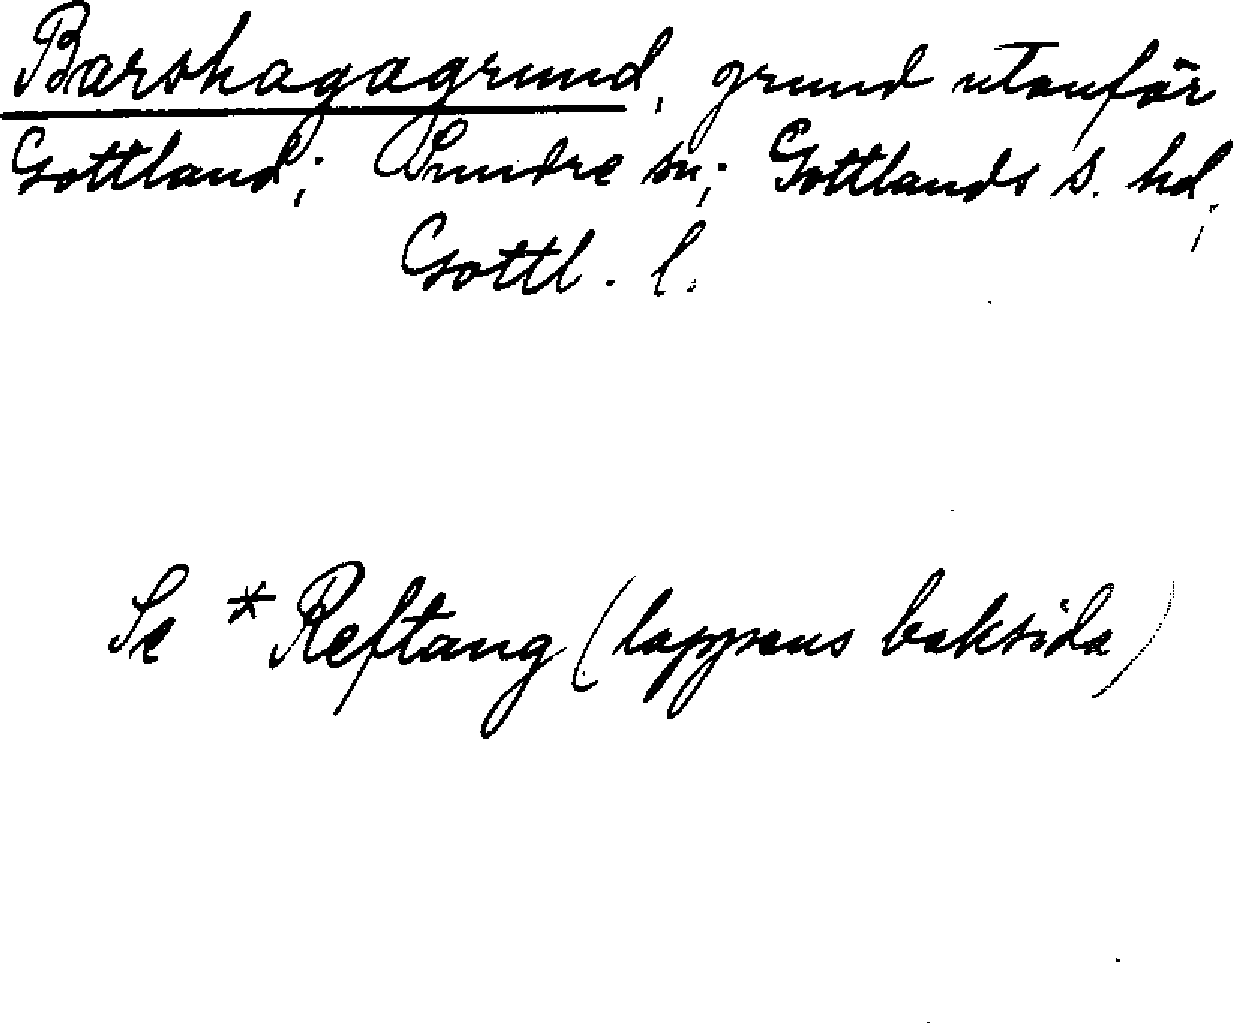 Barshagagrund, grund utanför
Gottland; Sundre sn; Gottlands s. hd;
Gottl. l.
Se *Reftang (lappens baksida)